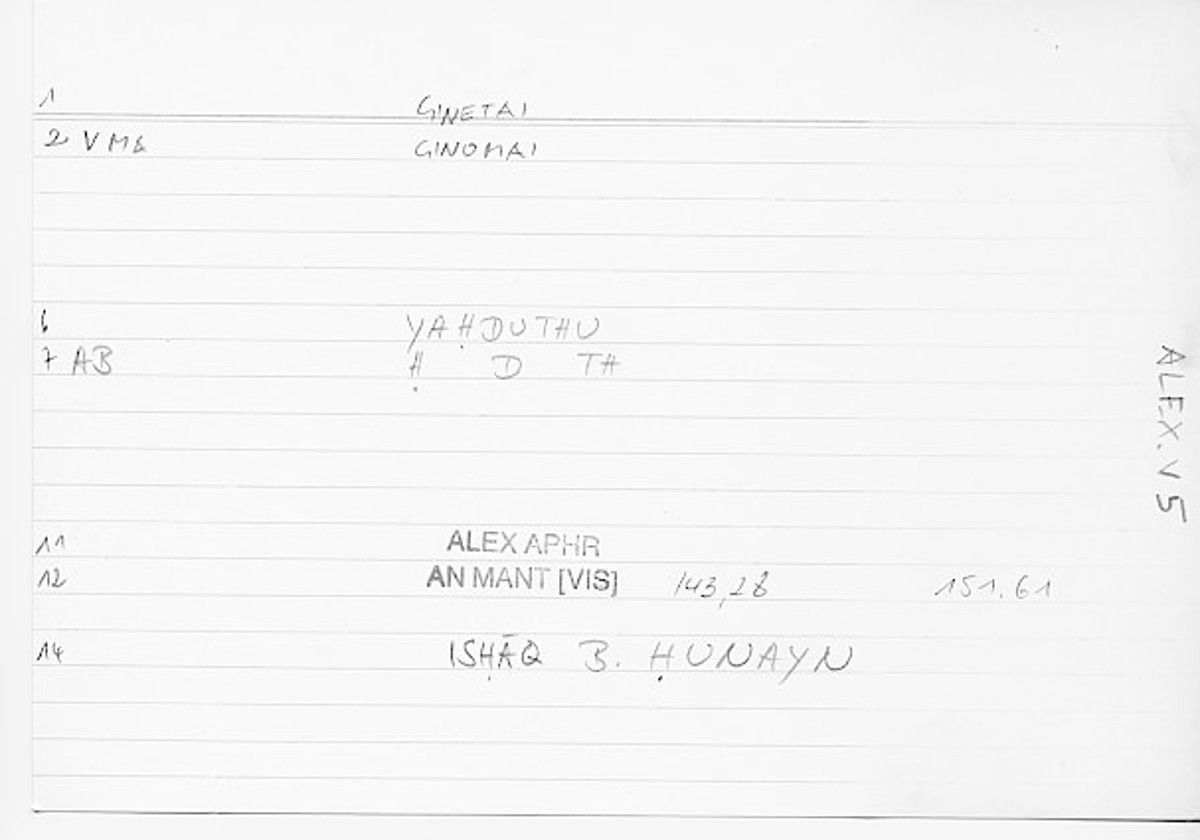 1 GINETAI
2 VM& GINOMAI
6 YAḤDUTHU
7 AB Ḥ D TH
11 ALEX APHR
12 AN MANT [VIS] 143,28 151.61
14 ISḤĀQ B. ḤUNAYN
ALEX. V 5